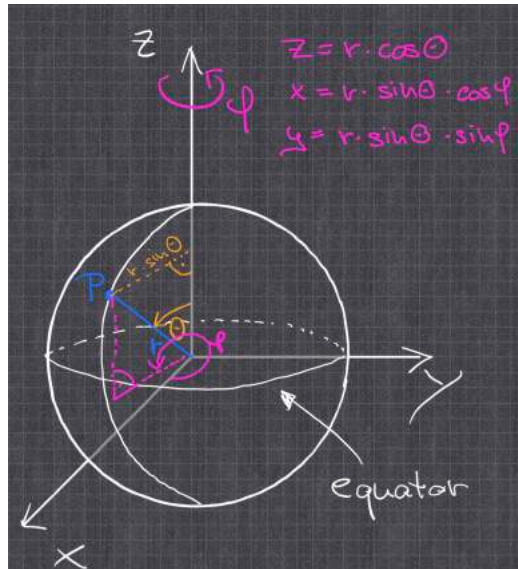 z
z = r · cosΘ
x = r · sinΘ · cosφ
y = r · sinΘ · sinφ
φ
r sinΘ
P
Θ
r
φ
y
equator
x